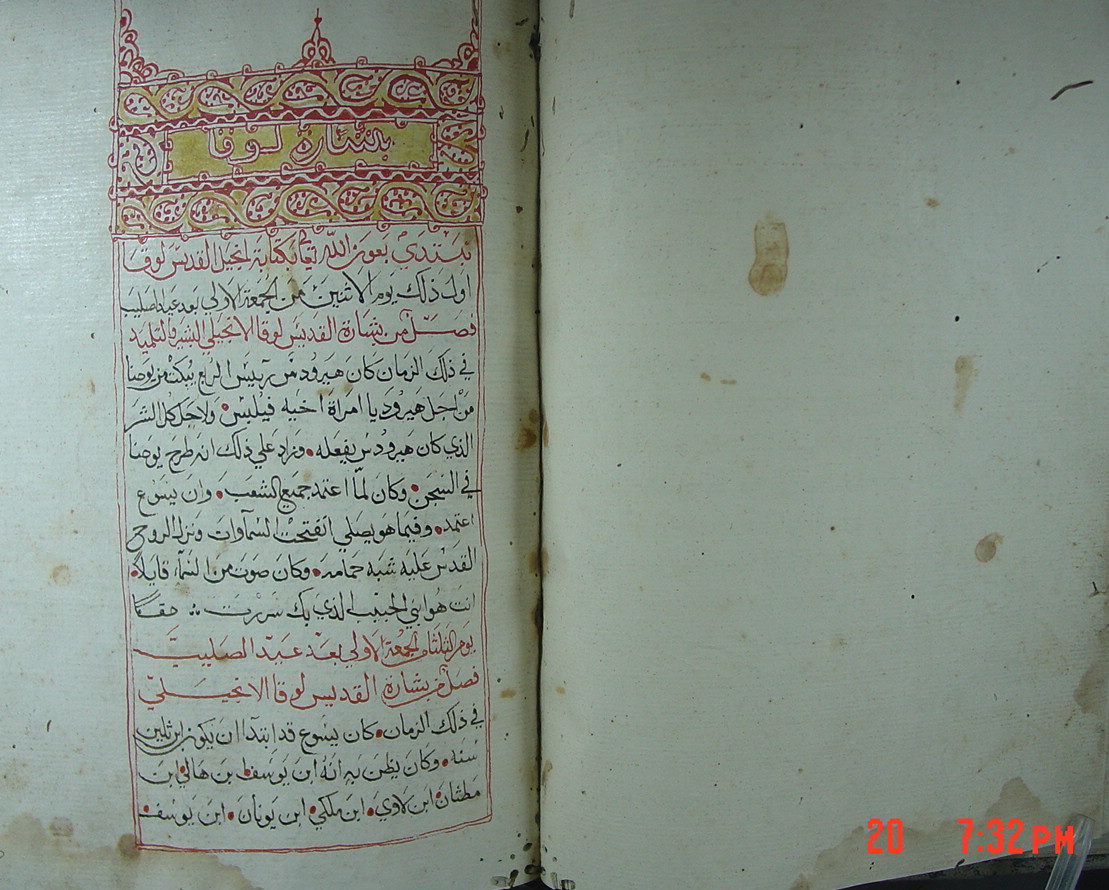 بشارة لوقا
نبتدي بعون الله تعالى بكتابة انجيل القديس لوقا
اول ذلك يوم الاثنين من الجمعة الاولي بعد عيد الصليب
فصل من بشارة القديس لوقا الانجيلي البشير والتلميد
في ذلك الزمان كان هيرودس رييس الربع يبكت من يوحنا
من اجل هيروديا امراة اخيه فيلبس • ولاجل كل الشر
الدي كان هيرودس يفعله • وزاد علي ذلك انه طرح يوحنا
في السجن • وكان لمّا اعتمد جميع الشعب • وان يسوع
اعتمد • وفيما هو يصلي انفتحت السماوات ونزل الروح
القدس عليه شبه حمامه • وكان صوت من السمآء قايلاً •
انت هو ابني الحبيب الذي بك سررت ⁘ حقـًا
يوم الثلثا من الجمعة الاولي بعد عيد الصليب
فصل من بشارة القديس لوقا الانجيلي
في ذلك الزمان • كان يسوع قد ابتدا ان يكون ابن ثلثين
سنه • وكان يظن به انه ابن يوسف • بن هالي • ابن
مطثان • ابن لاوي • ابن ملكي • ابن يونان • ابن يوسف •
20 7:32 PM